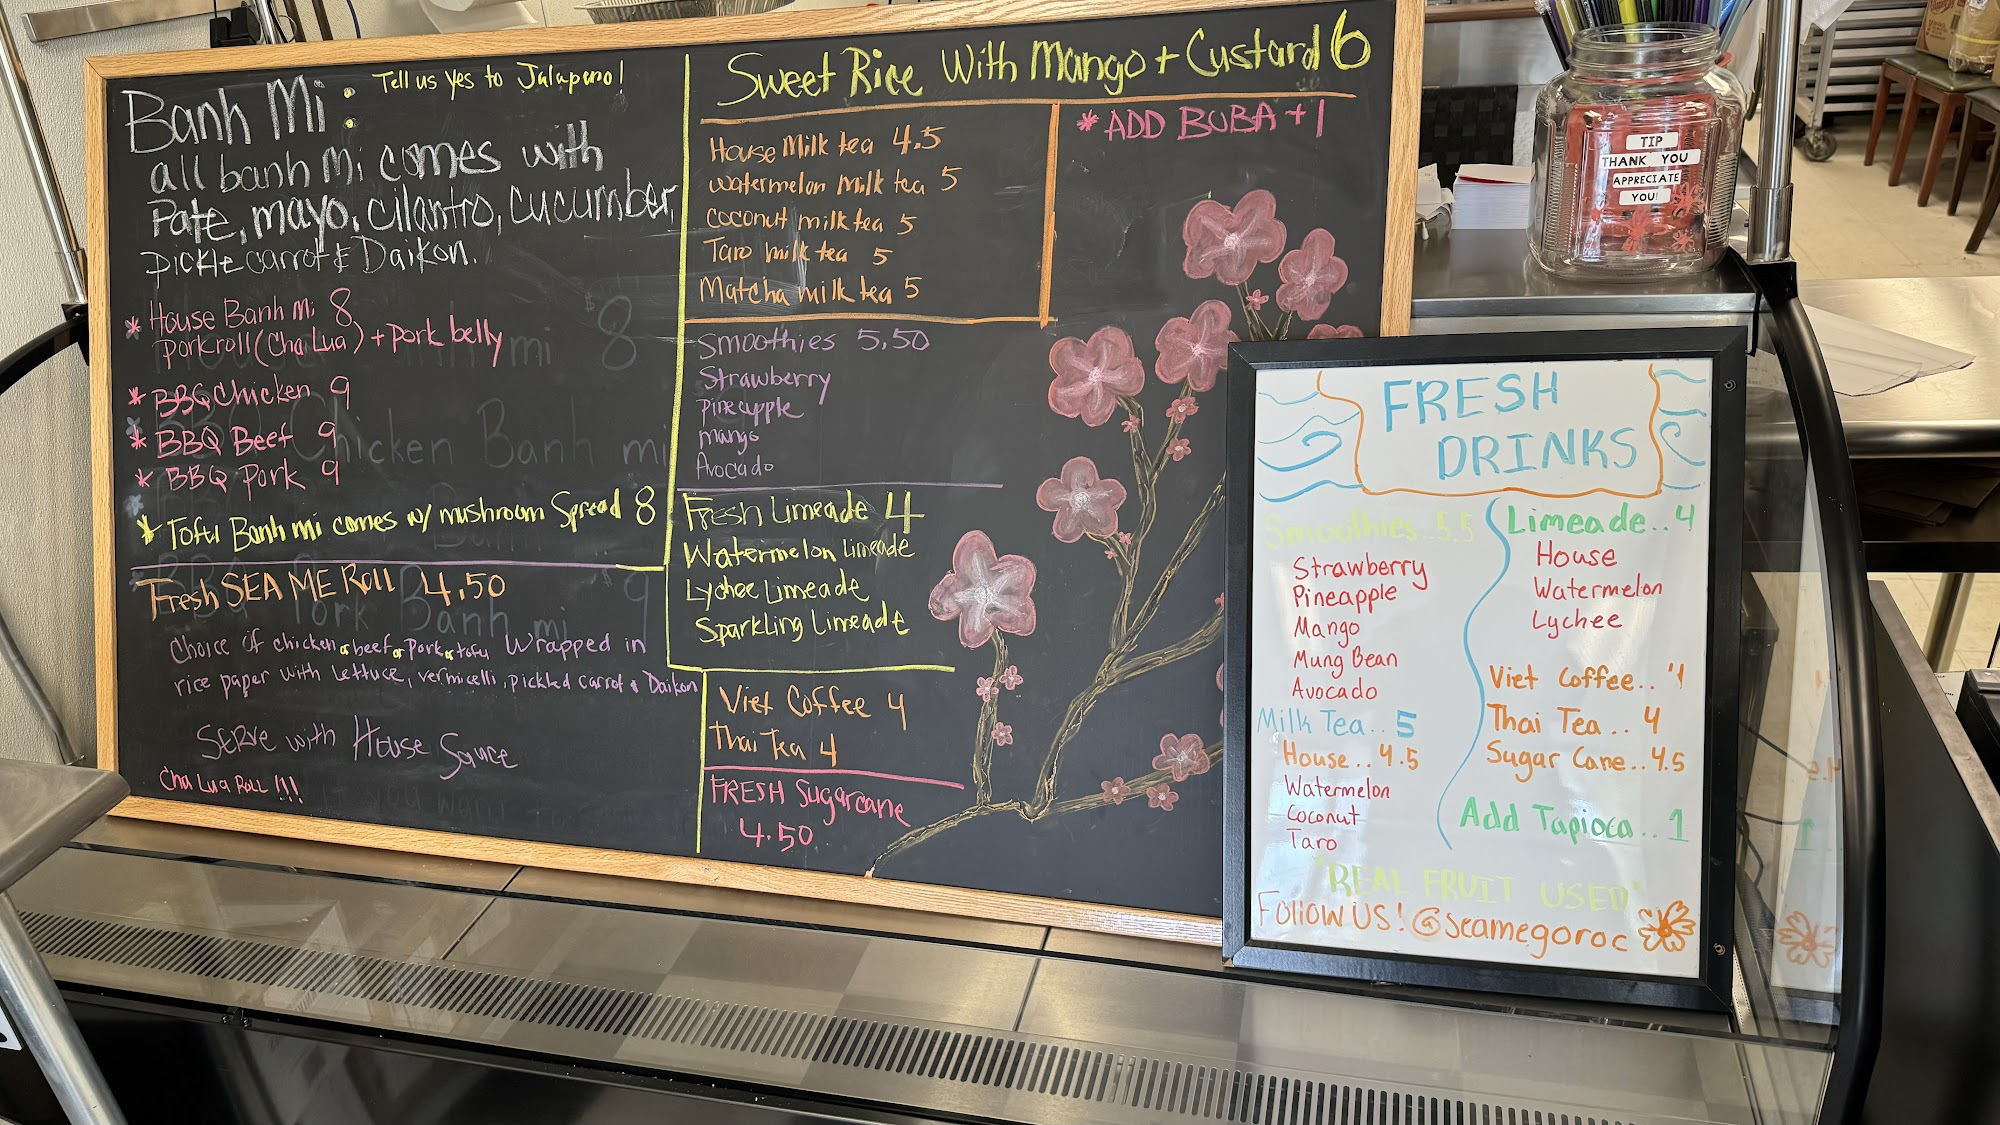 Banh Mi:
Tell us Yes to Jalapeno!
all banh Mi comes with
Pate, mayo, cilantro, cucumber,
pickle carrot & Daikon.
* House Banh Mi 8
porkroll (Cha Lua) + pork belly
* BBQ Chicken 9
* BBQ Beef 9
* BBQ Pork 9
* Tofu Banh mi comes w/ mushroom Spread 8
Fresh SEA ME Roll 4.50
Choice of chicken or beef or pork or tofu Wrapped in
rice paper with lettuce, vermicelli, pickled carrot & Daikon
Serve with House Sauce
Cha Lua Roll !!!
Sweet Rice With Mango + Custard 6
House Milk tea 4.5
Watermelon milk tea 5
Coconut milk tea 5
Taro milk tea 5
Matcha milk tea 5
* ADD BOBA +1
Smoothies 5.50
Strawberry
pineapple
mango
Avocado
Fresh Limeade 4
Watermelon Limeade
Lychee Limeade
Sparkling Limeade
Viet Coffee 4
Thai Tea 4
FRESH Sugarcane
4.50
TIP
THANK YOU
APPRECIATE
YOU!
FRESH
DRINKS
Smoothies..5.5
Strawberry
Pineapple
Mango
Mung Bean
Avocado
Milk Tea.. 5
House.. 4.5
Watermelon
Coconut
Taro
Limeade.. 4
House
Watermelon
Lychee
Viet Coffee.. 4
Thai Tea.. 4
Sugar Cane.. 4.5
Add Tapioca.. 1
"REAL FRUIT USED"
Follow US! @seamegoroc